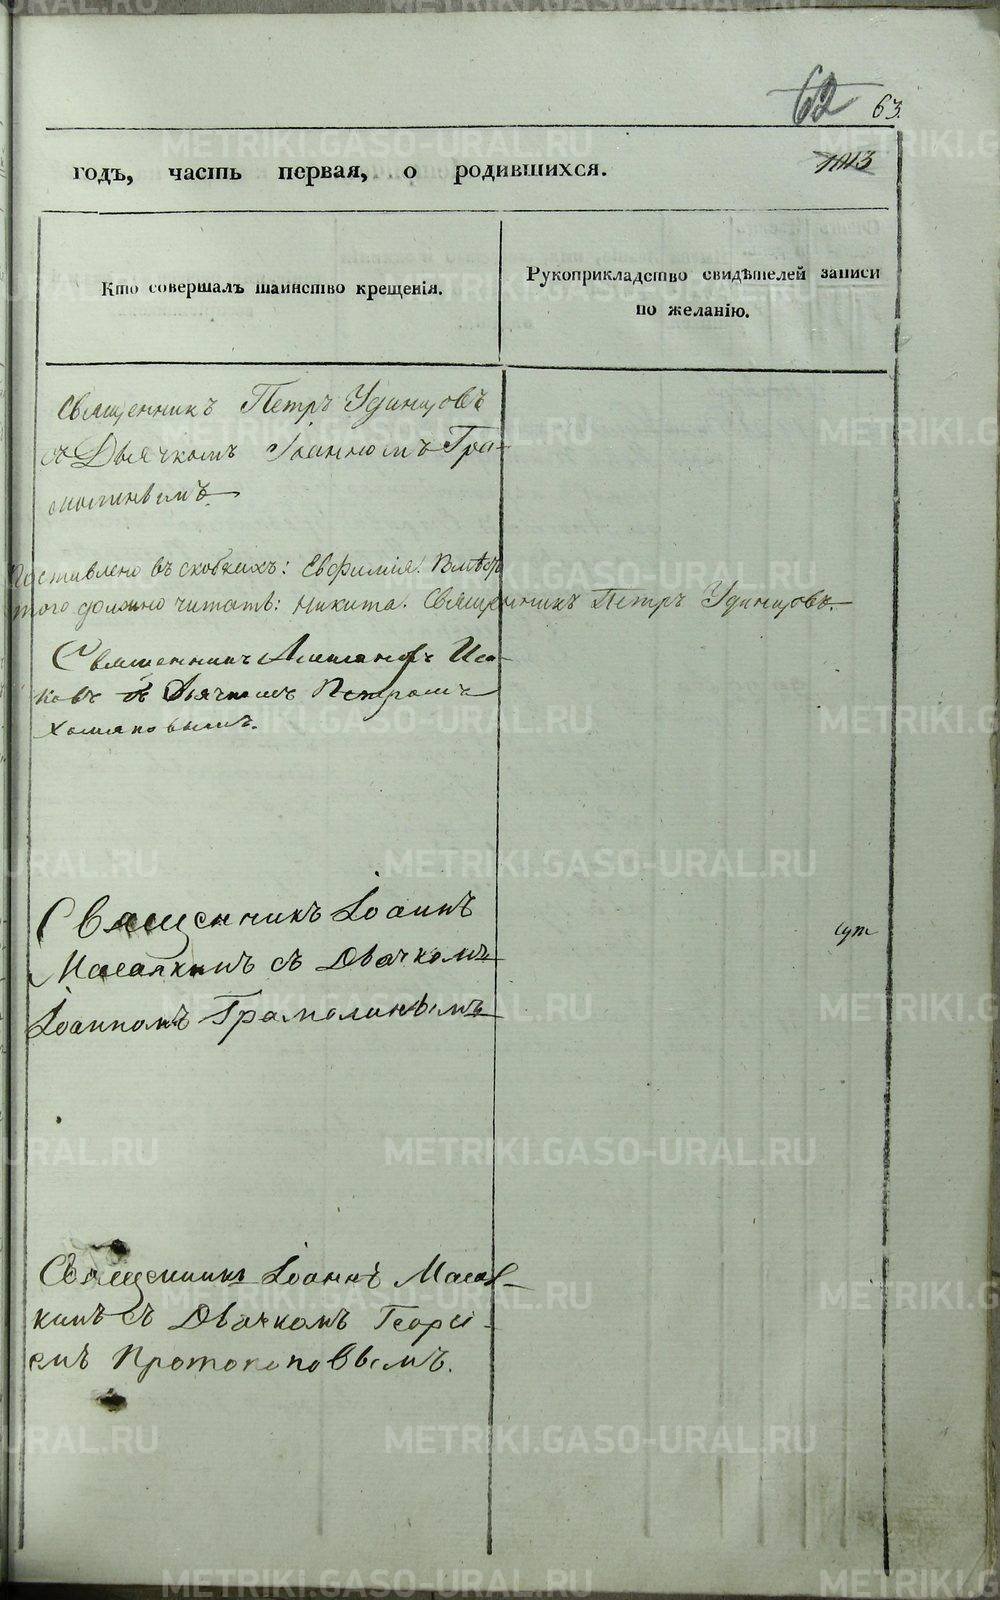 62 63.
годъ, часть первая, о родившихся.
Кто совершалъ таинство крещенія.
Рукоприкладство свидѣтелей записи
по желанію.
Священникъ Петръ Удинцовъ
съ Дьячкомъ Іоанномъ Гра-
молинымъ
Поставлено въ скобкахъ: Евфимія. Вмѣсто
того должно читать: Никита. Священникъ Петръ Удинцовъ.
Священникъ Александръ Иса-
ковъ съ Дьячкомъ Петромъ
Хомяковымъ.
Священникъ Іоаннъ
Масалкинъ съ Дьячкомъ
Іоанномъ Грамолинымъ
Священникъ Іоаннъ Масал-
кинъ съ Дьячкомъ Георгі-
емъ Протопоповымъ.
METRIKI.GASO-URAL.RU